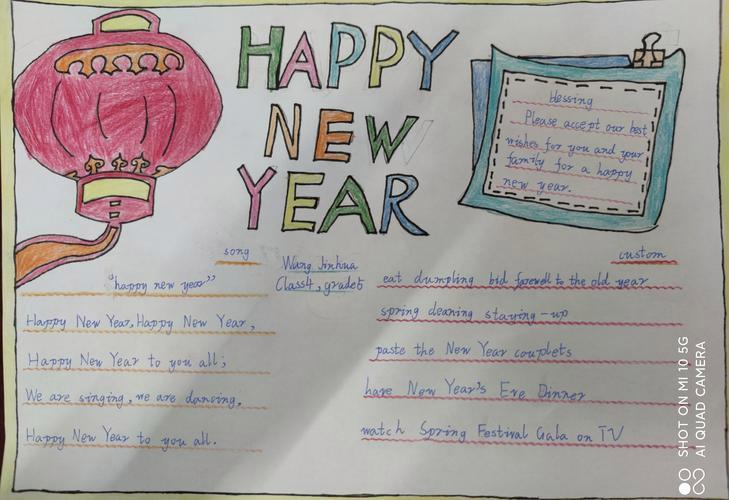 HAPPY
NEW
YEAR
blessing
Please accept our best
wishes for you and your
family for a happy
new year.
song
"happy new year"
Happy New Year, Happy New Year,
Happy New Year to you all;
We are singing, we are dancing,
Happy New Year to you all.
Wang Jinhua
Class4, grade5
custom
eat dumpling bid farewell to the old year
spring cleaning staying-up
paste the New Year couplets
have New Year's Eve Dinner
watch Spring Festival Gala on TV
SHOT ON MI 10 5G
AI QUAD CAMERA